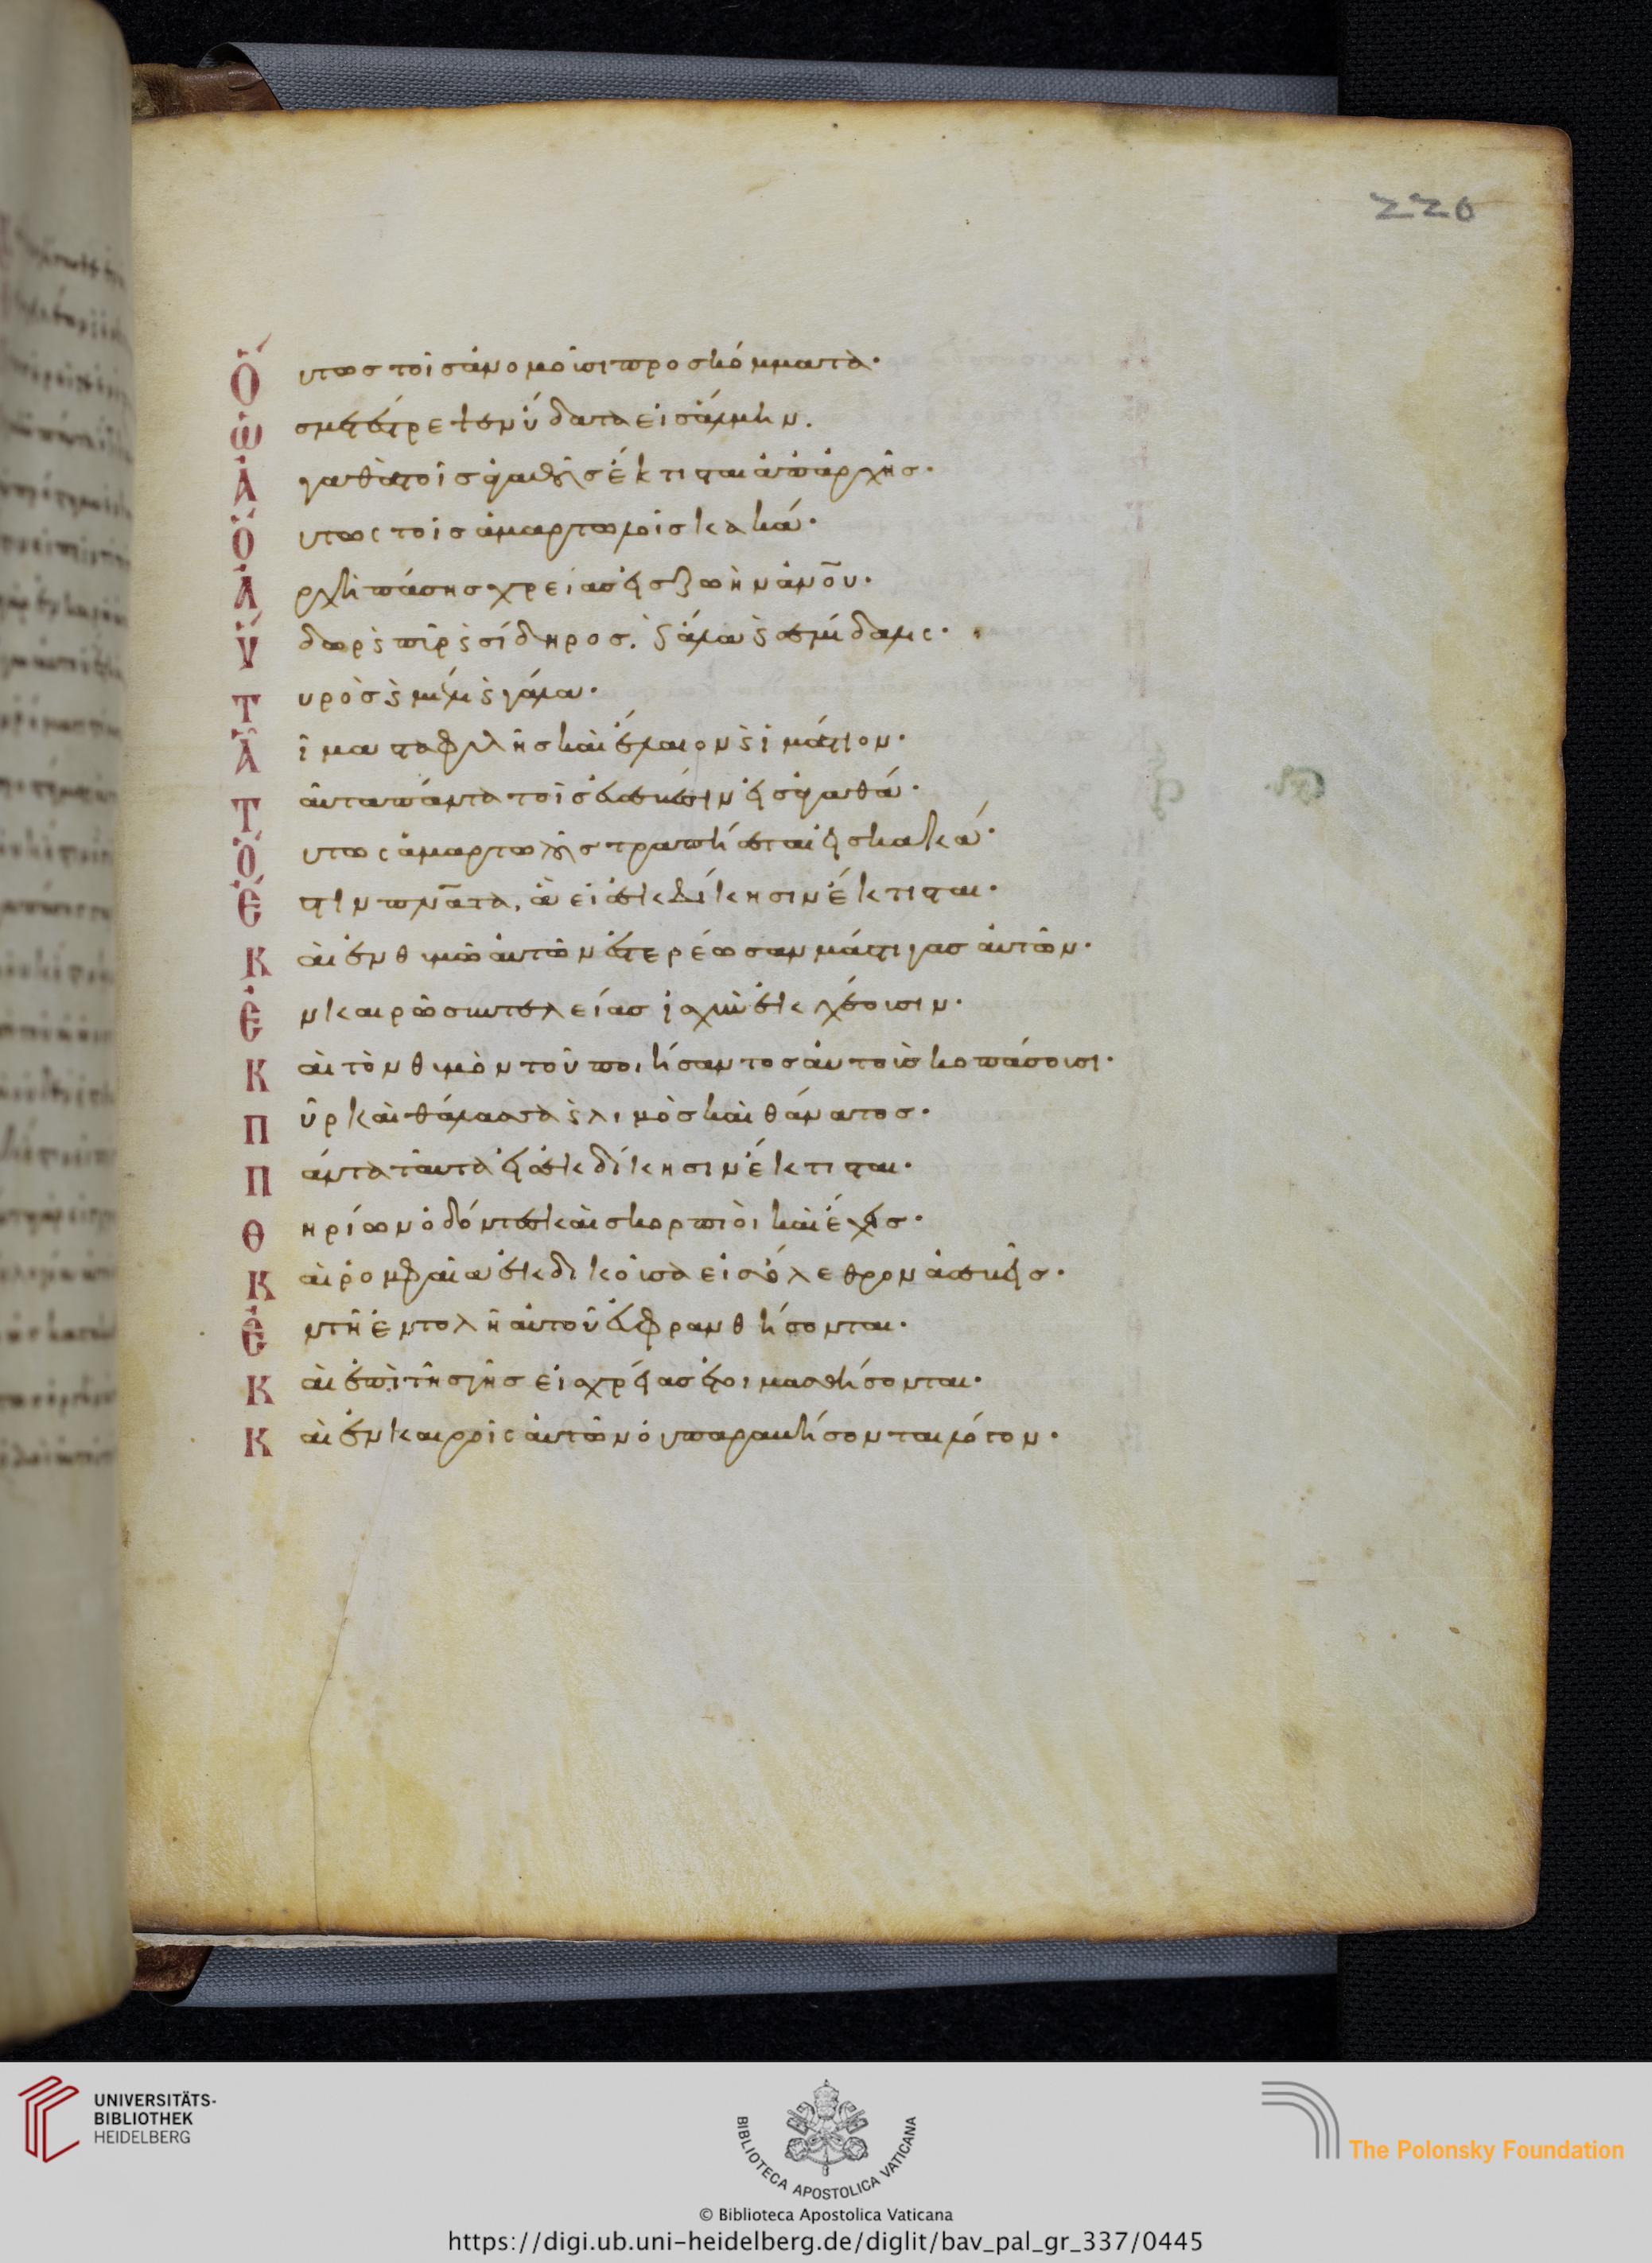 220
Οὕτως τοῖς ἀνόμοισι προσκόμματα·
Ὡς μετέστρεψεν ὕδατα εἰς ἅλμην.
Ἀγαθὰ τοῖς ἀγαθοῖς ἔκτισται ἀπαρχῆς·
Οὕτως τοῖς ἁμαρτωλοῖς κακά·
Ἀρχὴ πάσης χρείας εἰς ζωὴν ἀνου·
Ὕδωρ ϛ πῦρ ϛ σίδηρος. ϛ ἅλα ϛ σεμίδαλις·
Τυρὸς ϛ μέλι ϛ γάλα·
Αἷμα σταφυλῆς καὶ ἔλαιον ϛ ἱμάτιον·
Ταῦτα πάντα τοῖς εὐσεβέσιν εἰς ἀγαθά·
Οὕτως ἁμαρτωλοῖς τραπήσεται εἰς κακά·
Ἔστιν πνατα, ἃ εἰς ἐκδίκησιν ἔκτισται·
Καὶ ἐν θυμῷ αὐτῶν ἐστερέωσαν μάστιγας αὐτῶν·
Ἐν καιρῶ συντελείας ἰσχὺν ἐκχέουσιν·
Καὶ τὸν θυμὸν τοῦ ποιήσαντος αὐτοὺς κοπάσουσι·
Πῦρ καὶ θάλασσα ϛ λιμὸς καὶ θάνατος·
Πάντα ταῦτα εἰς ἐκδίκησιν ἔκτισται·
Θηρίων ὀδόντες καὶ σκορπίοι καὶ ἔχεις·
Καὶ ῥομφαία ἐκδικοῦσα εἰς ὄλεθρον ἀσεβεῖς·
Ἐν τῆ ἐντολῆ αὐτοῦ εὐφρανθήσονται·
Καὶ ἐπὶ τῆς γῆς εἰς χρείας ἑτοιμασθήσονται·
Καὶ ἐν καιροῖς αὐτῶν οὐ παραβήσονται λόγον·
UNIVERSITÄTS-
BIBLIOTHEK
HEIDELBERG
BIBLIOTECA APOSTOLICA VATICANA
The Polonsky Foundation
© Biblioteca Apostolica Vaticana
https://digi.ub.uni-heidelberg.de/diglit/bav_pal_gr_337/0445